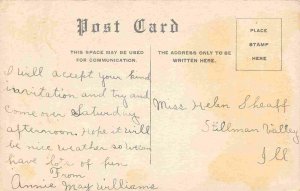 Post Card
THIS SPACE MAY BE USED
FOR COMMUNICATION.
THE ADDRESS ONLY TO BE
WRITTEN HERE.
PLACE
STAMP
HERE
I will accept your kind
invitation and try and
come over Saturday
afternoon. Hope it will
be nice weather so we can
have lots of fun
From
Annie May Williams
Miss Helen Sheaff
Stillman Valley
Ill